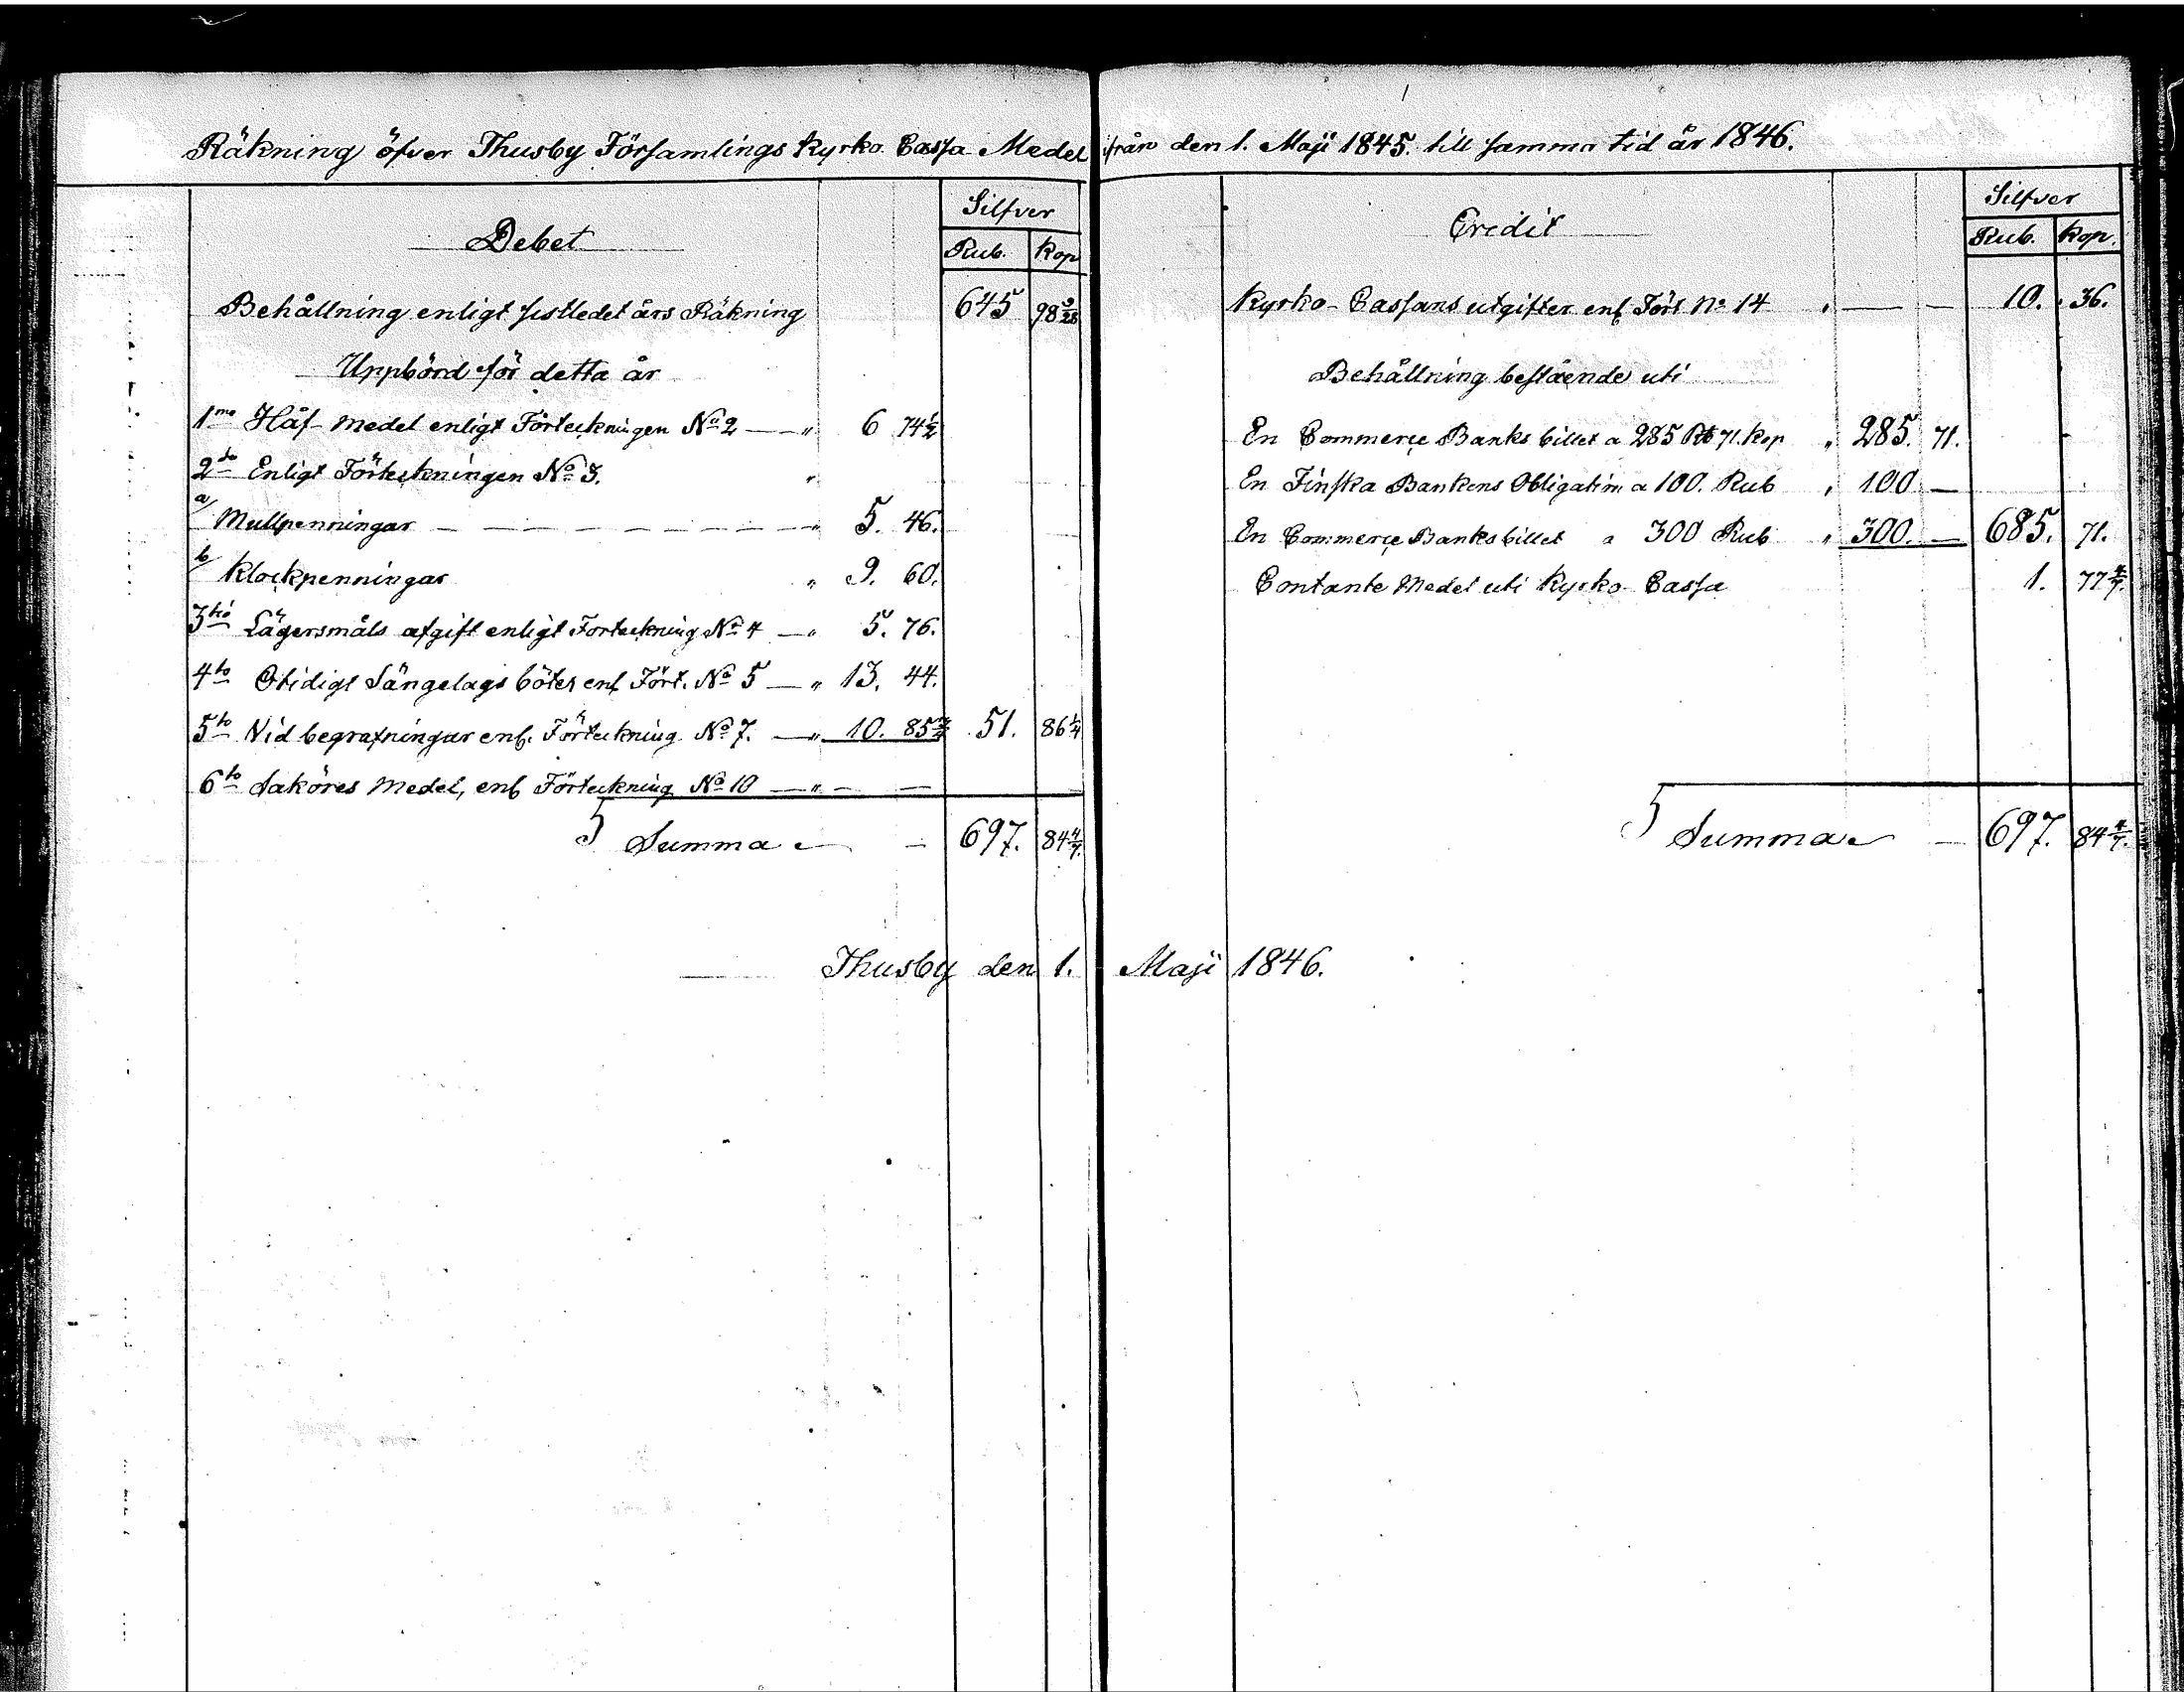 Räkning öfver Thusby Församlings Kyrko Cassa Medel från den 1. Maji 1845. till samma tid år 1846.
Debet
Silfver
Rub. Kop
Behållning enligt sistledet års Räkning 645 98 9/28
Uppbörd för detta år
1mo Håf Medel enligt Förteckningen No 2 — " 6 74 1/2
2do Enligt Förteckningen No 3. "
a/ Mullpenningar — — — — — — " 5. 46.
b/ Klockpenningar " 9. 60.
3tio Lägersmåls afgift enligt Forteckning No 4 — " 5. 76.
4to Otidigt Sängelags böter enl Fört. No 5 — " 13. 44.
5to Vid begrafningar enl. Förteckning No 7. — " 10. 85 3/4 51. 86 1/4
6to Saköres Medel, enl Förteckning No 10 — " — —
Summa — 697. 84 4/7.
Credit
Silfver
Rub. Kop.
Kyrko-Cassans utgifter enl Fört No 14 " — — 10. 36.
Behållning bestående uti
En Commerce Banks billet a 285 Rb 71. Kop " 285. 71.
En Finska Bankens Obligation a 100. Rub " 100 —
En Commerce Banks billet a 300 Rub " 300. — 685. 71.
Contante Medel uti Kyrko Cassa 1. 77 4/7.
Summa — 697. 84 4/7.
Thusby den 1. Maji 1846.